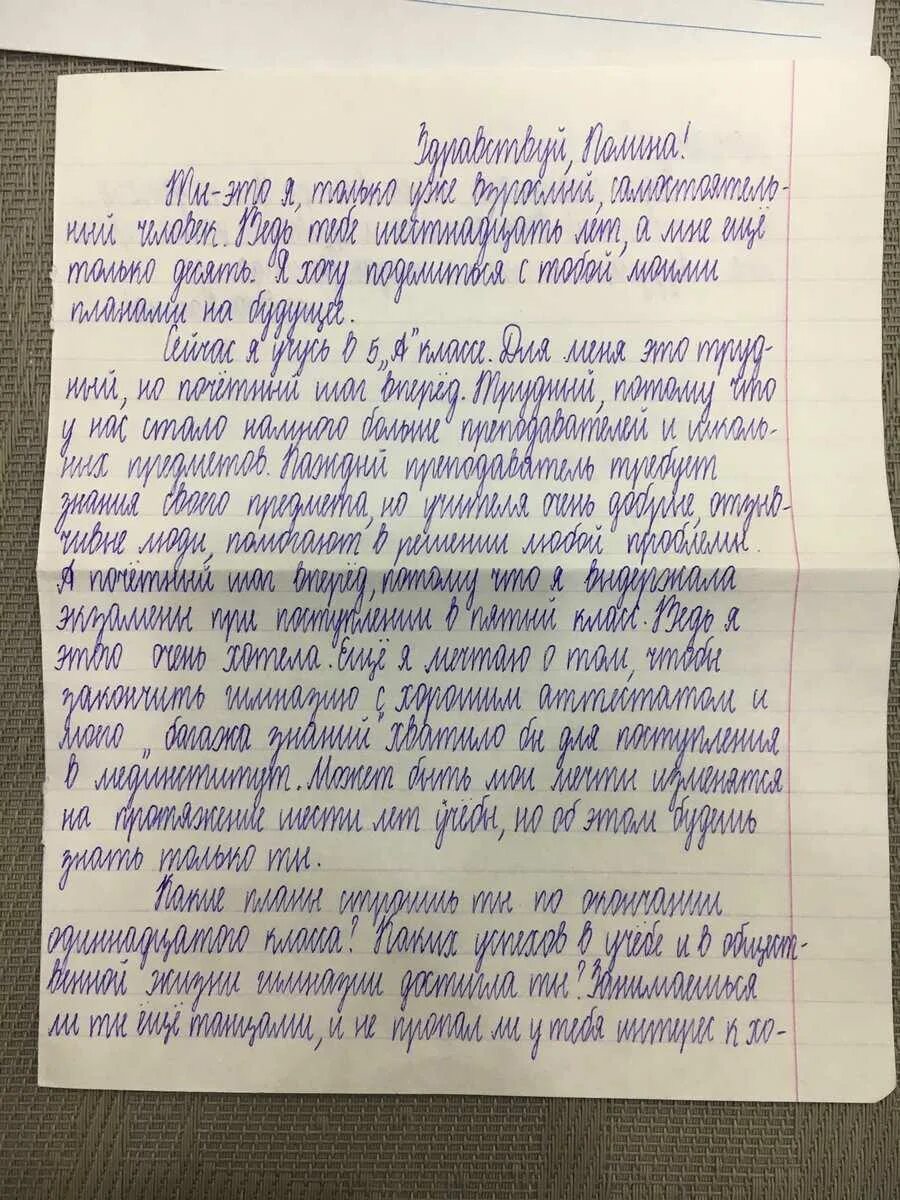 Здравствуй, Полина!
Ты-это я, только уже взрослый, самостоятель-
ный человек. Ведь тебе шестнадцать лет, а мне ещё
только десять. Я хочу поделиться с тобой моими
планами на будущее.
Сейчас я учусь в 5 „А" классе. Для меня это труд-
ный, но почётный шаг вперёд. Трудный, потому что
у нас стало намного больше преподавателей и школь-
ных предметов. Каждый преподаватель требует
знания своего предмета, но учителя очень добрые, отзыв-
чивые люди, помогают в решении любой проблемы.
А почётный шаг вперёд, потому что я выдержала
экзамены при поступлении в пятый класс. Ведь я
этого очень хотела. Ещё я мечтаю о том, чтобы
закончить гимназию с хорошим аттестатом и
моего „багажа знаний" хватило бы для поступления
в мединститут. Может быть мои мечты изменятся
на протяжение шести лет учёбы, но об этом будешь
знать только ты.
Какие планы строишь ты по окончании
одиннадцатого класса? Каких успехов в учёбе и в общест-
венной жизни гимназии достигла ты? Занимаешься
ли ты ещё танцами, и не пропал ли у тебя интерес к хо-